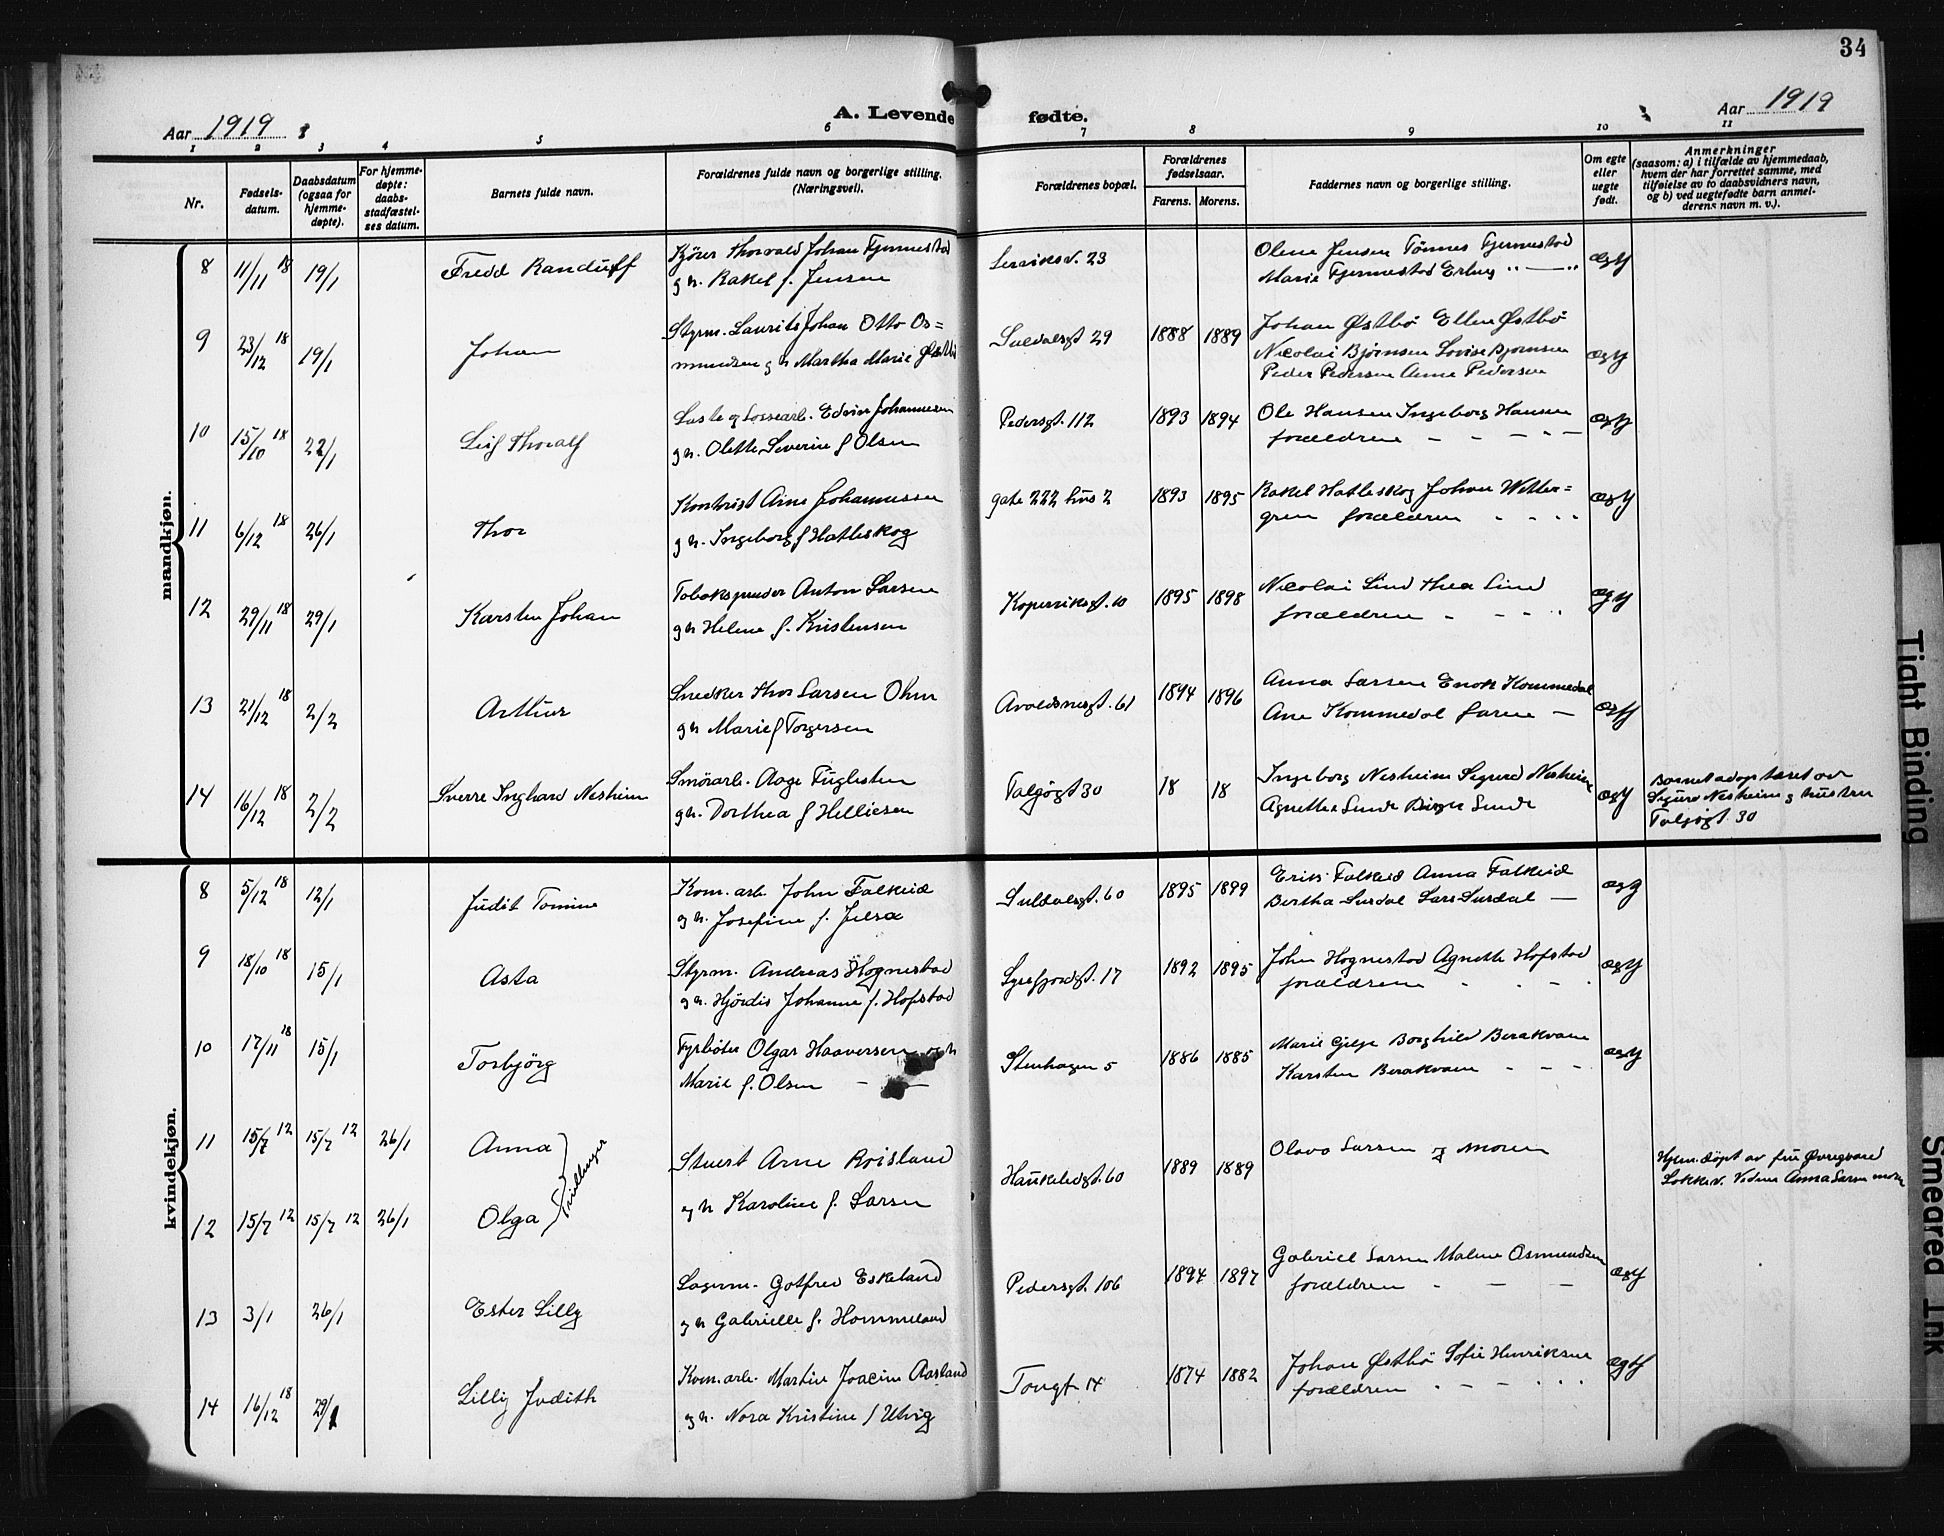 34
Aar 1919
A. Levende fødte.
Aar 1919
1 2 3 4 5 6 7 8 9 10 11
Nr.
Fødsels-
datum.
Daabsdatum
(ogsaa for
hjemme-
døpte).
For hjemme-
døpte:
daabs-
stadfæstel-
ses datum.
Barnets fulde navn.
Forældrenes fulde navn og borgerlige stilling.
(Næringsvei).
Forældrenes bopæl.
Forældrenes
fødselsaar.
Farens. Morens.
Faddernes navn og borgerlige stilling.
Om egte
eller
uegte
født.
Anmerkninger
(saasom: a) i tilfælde av hjemmedaab,
hvem der har forrettet samme, med
tilføielse av to daabsvidners navn,
og b) ved uegtefødte barn anmel-
derens navn m. v.).
mandkjøn.
8 11/11 18 19/1 Fredd Randulff
Kjører Thorvald Johan Fjermestad
g h. Rakel f. Jensen
23
Olene Jensen Tønnes Fjermestad
Marie Fjermestad Erling " — "
ægt
9 23/12 18 19/1 Johan
Styrm. Laurits Johan Otto Os=
mundsen g h Martha Marie Østbø
Suldalsgt 29 1888 1889
Johan Østbø Ellen Østbø
Nicolai Bjørnsen Lovise Bjørnsen
Peder Pedersen Anna Pedersen
ægt
10 15/10 18 22/1 Leif Thoralf
Laste og Lossearb. Edvin Johannesen
g h. Olette Severine f Olsen
Pedersgt. 112 1893 1894
Ole Hansen Ingeborg Hansen
forældrene - - - " -
ægt
11 6/12 18 26/1 Thor
Kontorist Arne Johannessen
g h. Ingeborg f Hatleskog
gate 222 hus 2 1893 1895
Rakel Hatleskog Johan Witter=
gren forældrene " " "
ægt
12 29/11 18 29/1 Karsten Johan
Tobakspinder Anton Larsen
g h Helene f. Kristensen
Kopervikgt. 10 1895 1898
Nicolai Lind Thea Lind
forældrene - - " "
ægt
13 21/12 18 2/2 Arthur
Snedker Thor Larsen Ohm
g h Marie f Torgersen
Avaldsnesgt. 61 1894 1896
Anna Larsen Enok Kommedal
Ane Kommedal faren —
ægt
14 16/12 18 2/2 Sverre Inghard Nesheim
Smörarb. Aage Fuglesten
g h. Dorthea f Helliesen
Talgøgt 30 18 18
Ingeborg Nesheim Sigurd Nesheim
Agnethe Sunde Birger Sunde
ægt
Barnet adopteret av
Sigurd Nesheim g hustru
Talgøgt. 30
kvindekjøn.
8 5/12 18 12/1 Judit Tomine
Kom. arb. John Falkeid
g h. Josefine f. Jelsa
Suldalsgt. 60 1895 1899
Erik Falkeid Anna Falkeid
Bertha Surdal Lars Surdal —
ægt
9 18/10 18 15/1 Asta
Styrm. Andreas Hognestad
g h. Hjördis Johanne f. Hofstad
Lysefjordgt. 17 1892 1895
John Hognestad Agnette Hofstad
forældrene " " - "
ægt
10 17/11 18 15/1 Torbjörg
Fyrbøter Olgar Haaversen og h
Marie f. Olsen — —
Stenhagen 5 1886 1885
Marie Gilje Borghild Berakvam
Karsten Berakvam - - -
ægt
11 15/7 12 15/7 12 26/1 Anna
12 15/7 12 15/7 12 26/1 Olga
Tvillinger
Stuert Arne Roisland
g h Karoline f. Larsen
Haukeliegt. 60 1889 1889
Olava Larsen og moren
Hjem. døpt av fru Øvregaard
Lokkev. Vidner Anna Larsen moren
13 3/1 26/1 Ester Lilly
Lagerm. Gotfred Eskeland
g h Gabrielle f. Hommeland
Pedersgt. 106 1894 1897
Gabriel Larsen Malene Osmundsen
forældrene - — —
ægt
14 16/12 18 29/1 Lilly Judith
Kom. arb. Martin Joacim Aasland
g h. Nora Kristine f Utvig
Tougt 14 1874 1882
Johan Østbø Sofie Henriksen
forældrene " - - " " "
ægt
Tight Binding
Smeared Ink